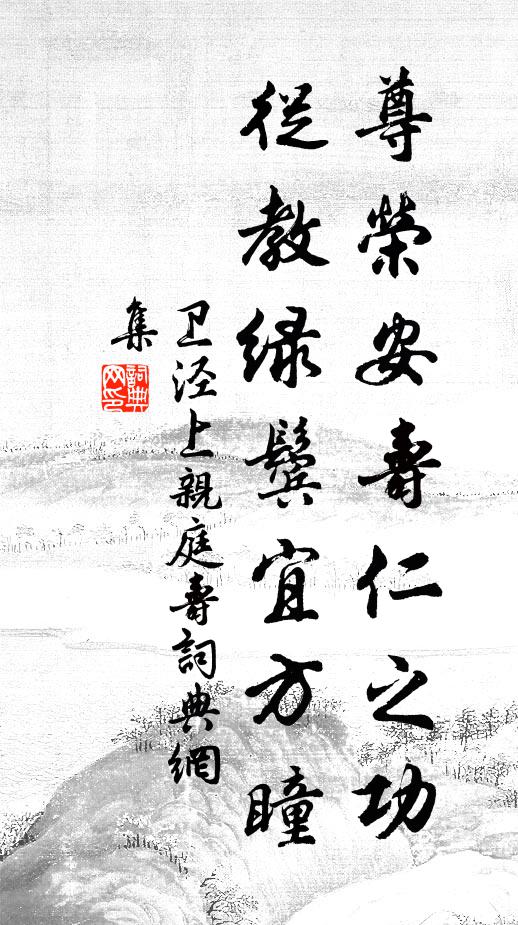 尊榮安壽仁之功
從教绿鬓宜方瞳
卫泾上親庭壽詞典網
集
詞典網印